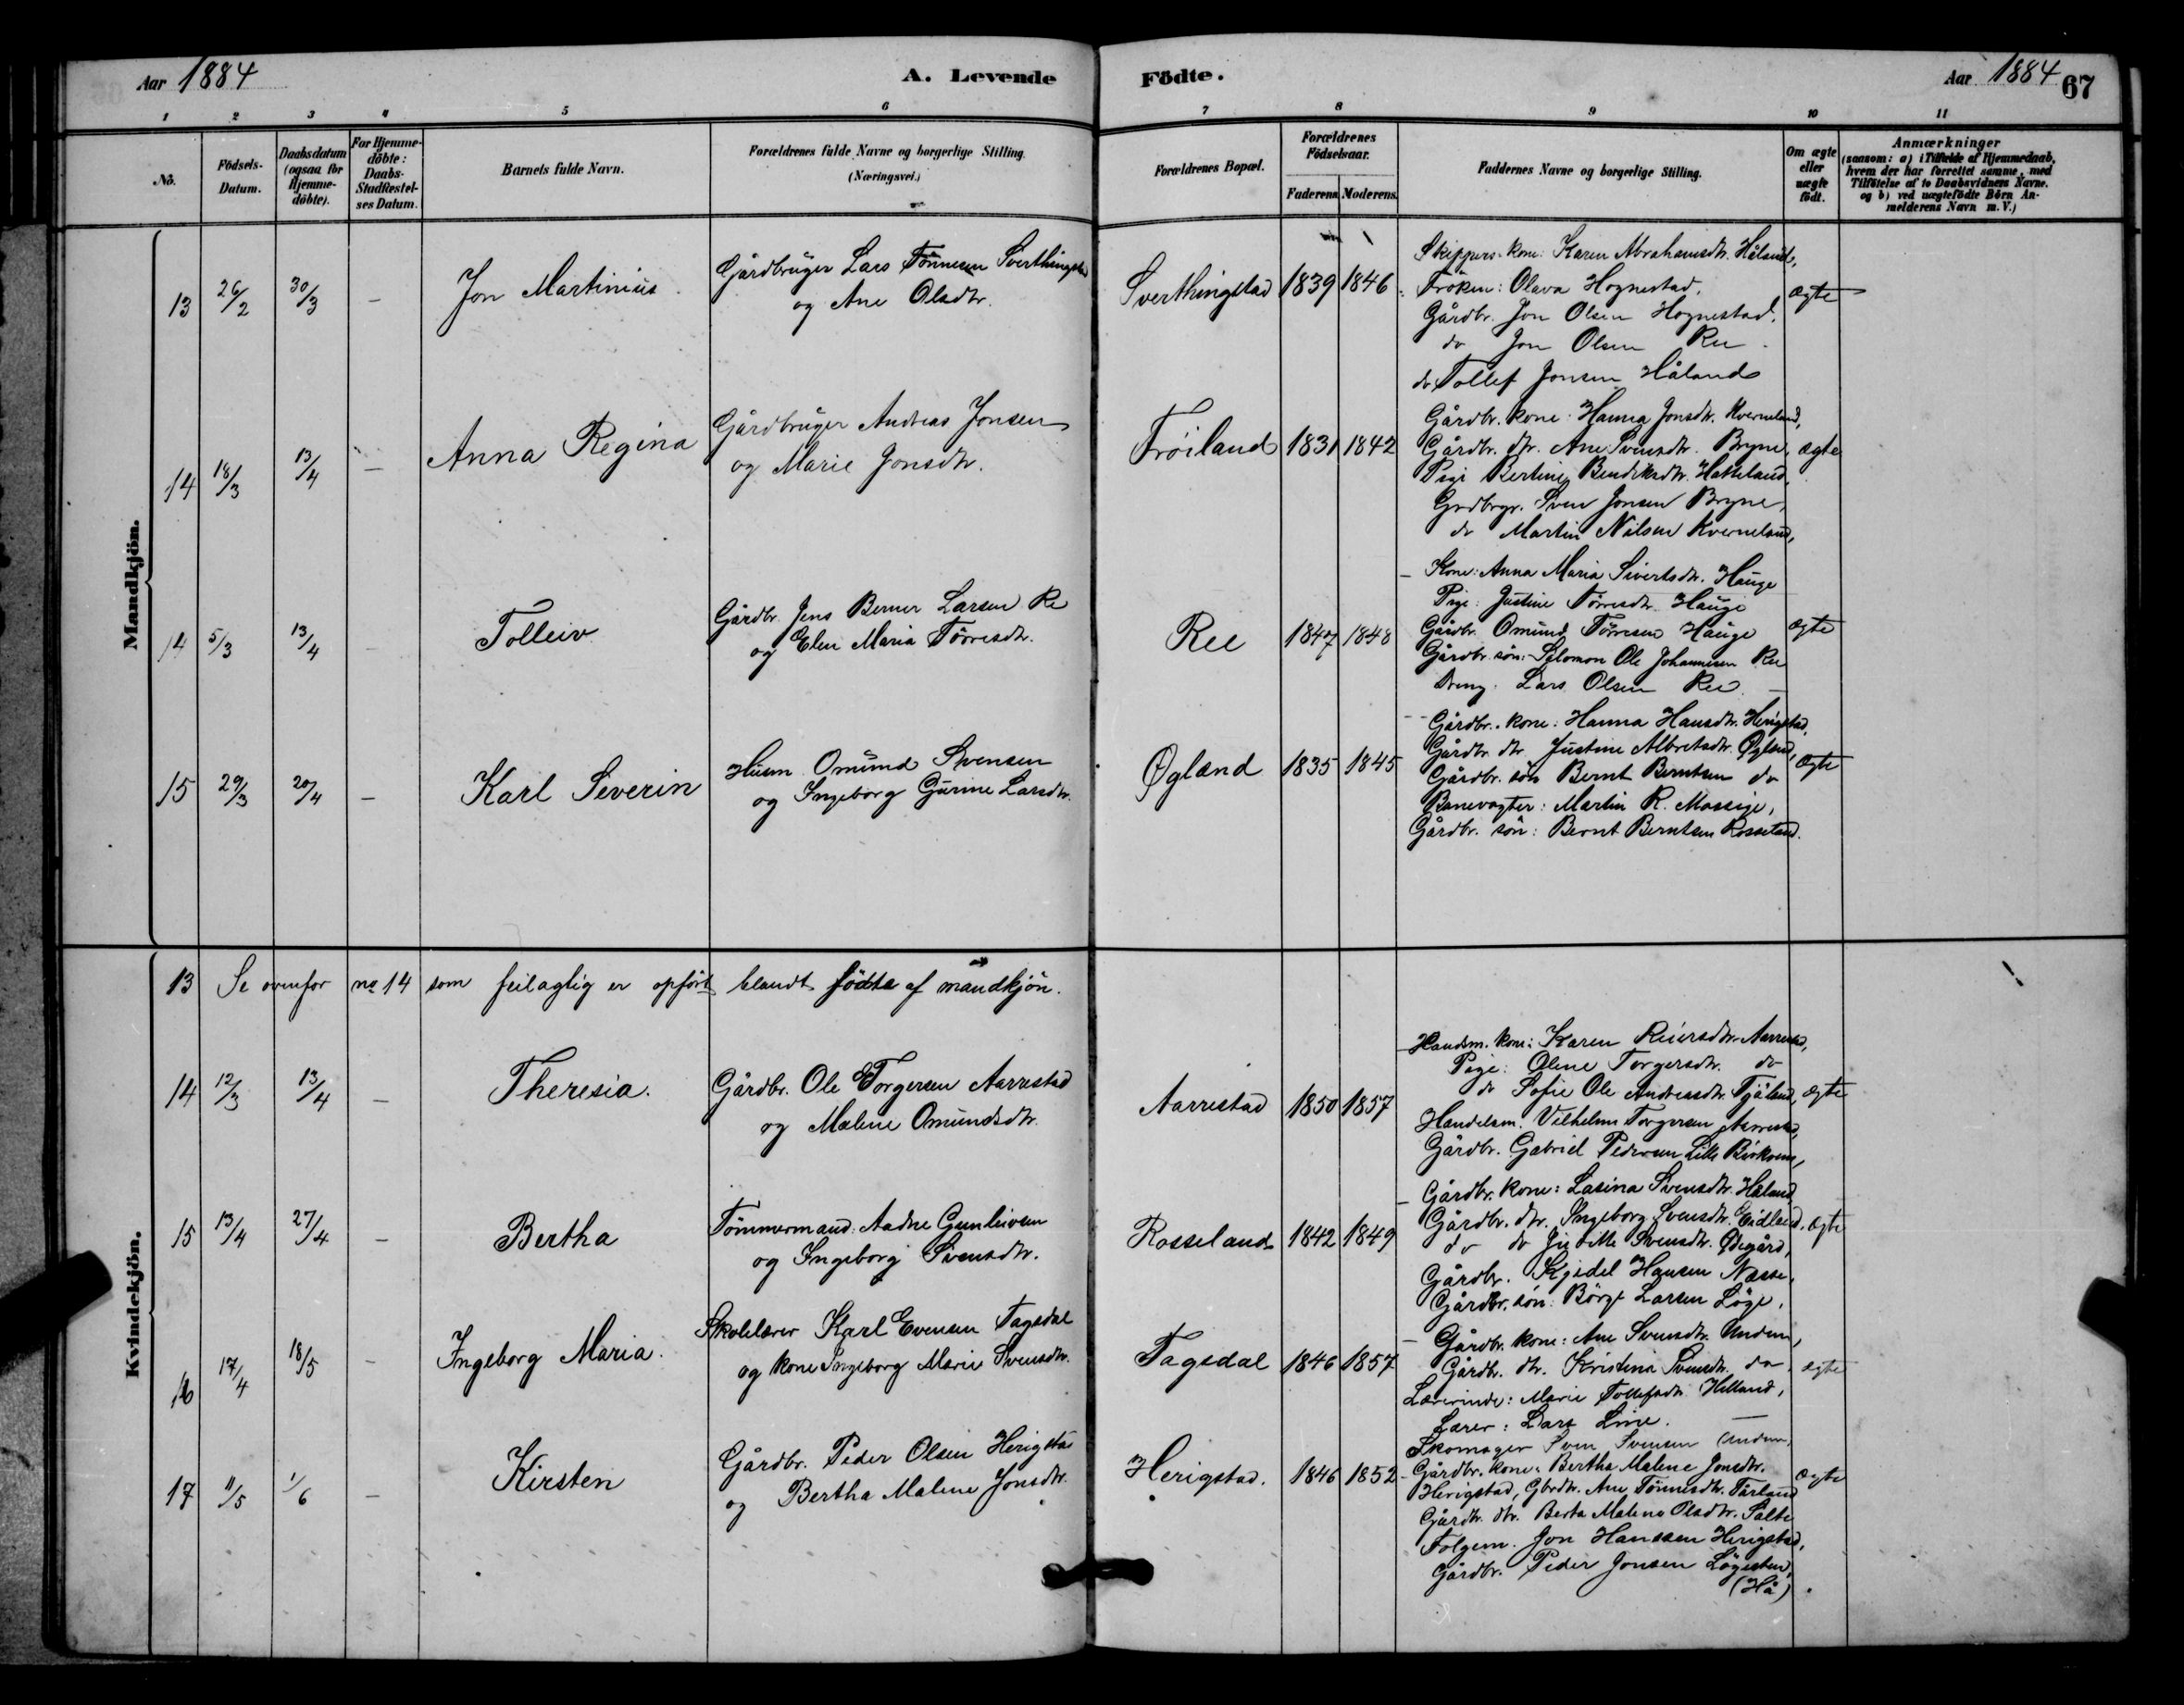 Aar 1884
A. Levende Födte.
Aar 1884
67
1 2 3 4 5 6 7 8 9 10 11
No.
Födsels-Datum.
Daabsdatum (ogsaa for Hjemme-döbte).
For Hjemme-döbte: Daabs-Stadfæstel-ses Datum.
Barnets fulde Navn.
Forældrenes fulde Navne og borgerlige Stilling. (Næringsvei.)
Forældrenes Bopæl.
Forældrenes Födselsaar.
Faderens. Moderens.
Faddernes Navne og borgerlige Stilling.
Om ægte eller uægte födt.
Anmærkninger
(saasom: a) i Tilfælde af Hjemmedaab,
hvem der har forrettet samme, med
Tilföielse af to Daabsvidners Navne.
og b) ved uægtefödte Börn An-
melderens Navn m. V.)
Mandkjön.
13 26/2 30/3 – Jon Martinius.
Gårdbruger Lars Tönnesen Sverthingstad
og Ane Olsdtr.
Sverthingstad 1839 1846
Skippers kone: Karen Abrahamsdtr. Håland,
Fröken: Olava Hognestad.
Gårdbr. Jon Olsen Hognestad.
do Jon Olsen Ree.
do Tollef Jonsen Håland
ægte
14 18/3 13/4 – Anna Regina
Gårdbruger Andreas Jonsen
og Marie Jonsdtr.
Fröiland 1831 1842
Gårdbr. kone: Hanna Jonsdtr. Kverneland,
Gårdbr. dtr. Ane Svensdtr. Bryne,
Pige Bertine Bendiksdtr. Hatteland,
Grdbrgr. Sven Jonsen Bryne,
do Martin Nilsen Kverneland,
ægte
14 5/3 13/4 – Tolleiv
Gårdbr. Jens Berner Larsen Re
og Elen Maria Törresdtr.
Ree 1847 1848
– Kone: Anna Maria Sivertsdtr. Hauge
Pige: Justine Törresdtr. Hauge
Gårdbr. Omund Törresen Hauge
Gårdbr. sön: Salomon Ole Johannesen Ree
Dreng: Lars Olsen Ree. –
ægte
15 29/3 20/4 – Karl Severin
Husm. Omund Svensen
og Ingeborg Gurine Larsdtr.
Øgland 1835 1845
Gårdbr. kone: Hanna Hansdtr. Herigstad,
Gårdbr. dtr Justine Albretsdtr. Øgland,
Gårdbr. sön Bernt Berntsen do
Banevogter: Martin R. Mossige,
Gårdbr. sön: Bernt Berntsen Rosseland.
ægte
Kvindekjön.
13 Se ovenfor no 14 som feilagtig er opfört blandt födte af mandkjön.
14 12/3 13/4 – Theresia.
Gårdbr. Ole Torgersen Aarrestad
og Malene Omundsdtr.
Aarrestad 1850 1857
Handsm. kone: Karen Reiersdtr. Aarrestad,
Pige: Oline Torgersdtr. do
do Sofie Ole Andreasdtr. Tjåland,
Handelsm. Vilhelm Torgersen Aarrestad,
Gårdbr. Gabriel Pedersen Lille Birkrem,
ægte
15 13/4 27/4 – Bertha
Tömmermand. Aadne Gunleivsen
og Ingeborg Svensdtr.
Rosseland 1842 1849
– Gårdbr. kone: Lasina Svensdtr. Håland
Gårdbr. dtr. Ingeborg Svensdtr. Eidland,
do do Svensdtr. Ødegård,
Gårdbr. Kjedel Hansen Næsse,
Gårdbr. sön: Börge Larsen Löge,
ægte
16 17/4 18/5 – Ingeborg Maria.
Skolelærer Karl Evensen Fagsdal
og kone Ingeborg Marie Svensdtr.
Fagsdal 1846 1857
– Gårdbr. kone: Ane Svensdtr. Undem,
Gårdbr. dtr. Kristina Svensdtr. do
Lærerinde: Marie Tollefsdtr. Helland,
Lærer: Lars Line.
Skomager Sven Svensen Undem.
ægte
17 11/5 1/6 – Kirsten
Gårdbr. Peder Olsen Herigstad
og Bertha Malene Jonsdtr.
Herigstad. 1846 1852
– Gårdbr. kone: Bertha Malene Jonsdtr.
Herigstad, Gbrdtr. Ane Tönnesdtr. Tårland
Gårdbr. dtr. Berta Malena Olsdtr. Salte
Folgem. Jon Hanssen Herigstad,
Gårdbr. Peder Jonsen
(Hå).
ægte